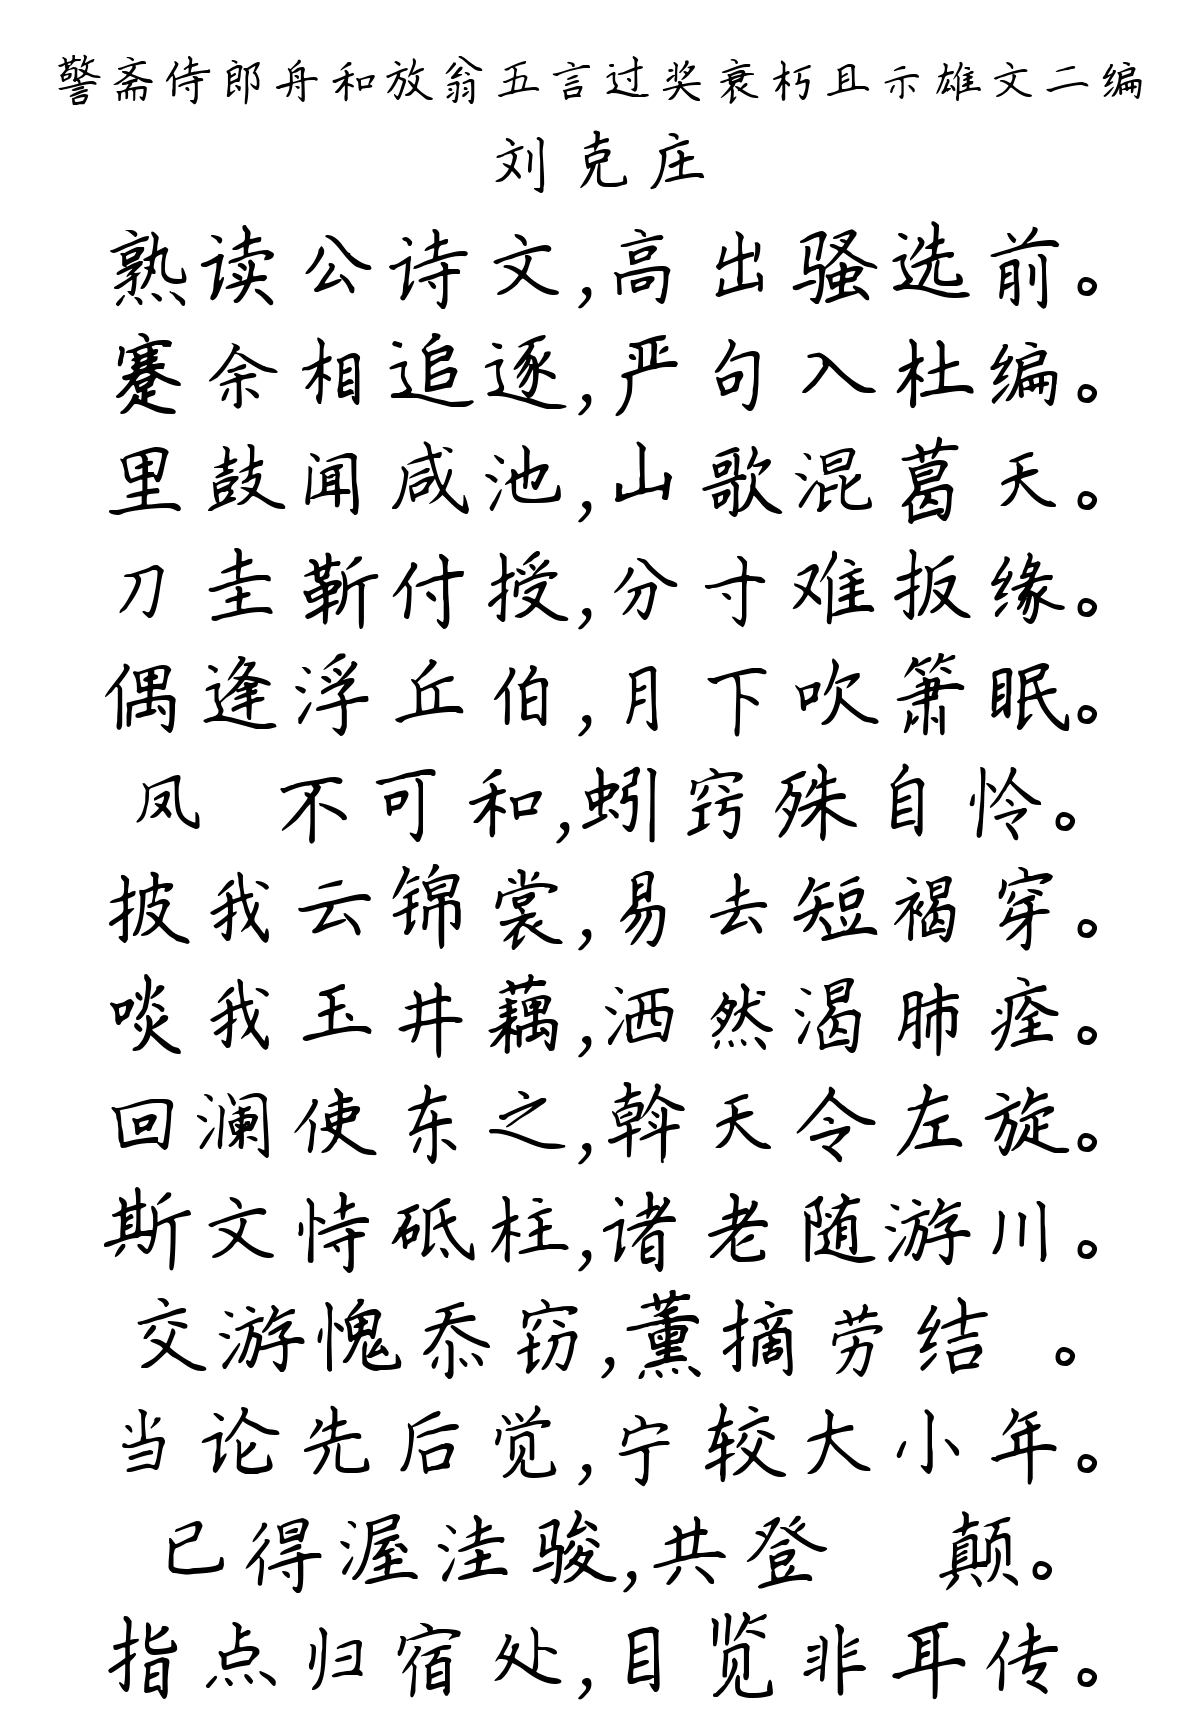 警斋侍郎舟和放翁五言过奖衰朽且示雄文二编
刘克庄
熟读公诗文,高出骚选前。
蹇余相追逐,严句入杜编。
里鼓闻咸池,山歌混葛天。
刀圭靳付授,分寸难扳缘。
偶逢浮丘伯,月下吹箫眠。
凤 不可和,蚓窍殊自怜。
披我云锦裳,易去短褐穿。
啖我玉井藕,洒然渴肺痊。
回澜使东之,斡天令左旋。
斯文恃砥柱,诸老随游川。
交游愧忝窃,薰摘劳结 。
当论先后觉,宁较大小年。
已得渥洼骏,共登 颠。
指点归宿处,目览非耳传。